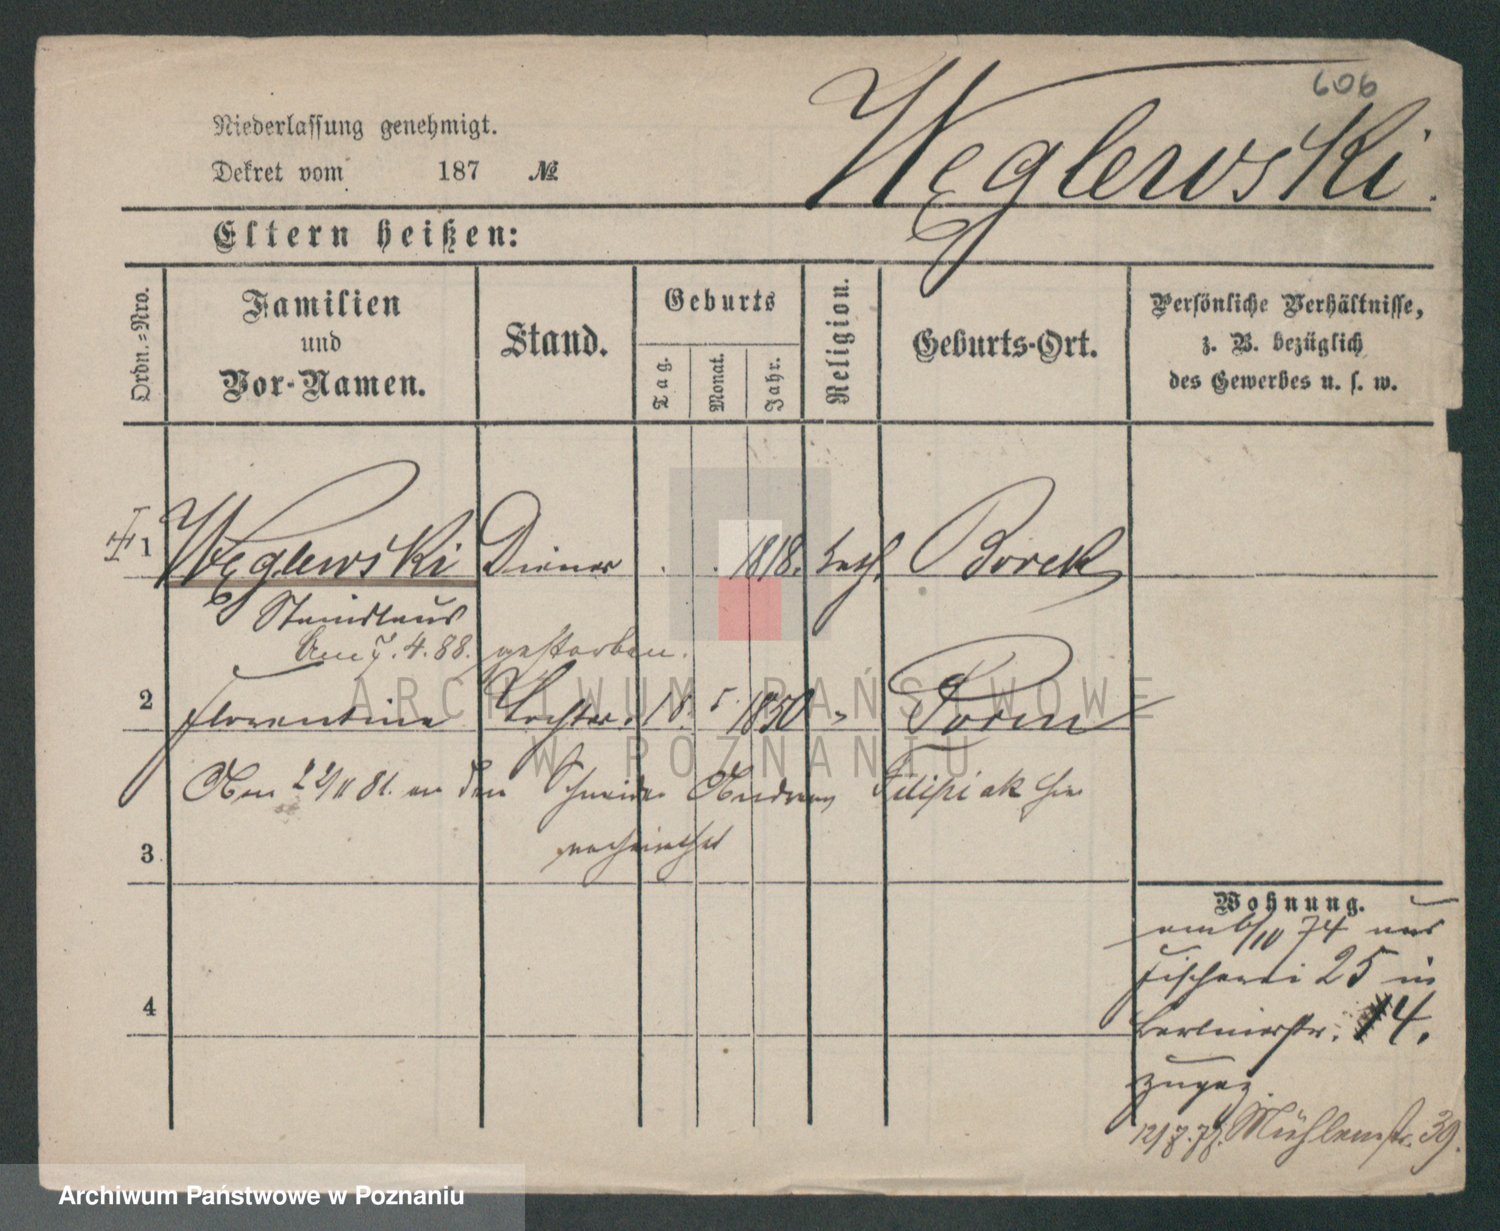 606
Niederlassung genehmigt.
Węglewski.
Dekret vom 187 №
Eltern heißen:
Ordn.=Nro.
Familien
und
Vor-Namen.
Stand.
Geburts
Tag.
Monat.
Jahr.
Religion.
Geburts-Ort.
Persönliche Verhältnisse,
z. B. bezüglich
des Gewerbes u. s. w.
1 Węglewski Diener . . 1818. kath. Borek
Stanislaus
Am 7.4.88. gestorben.
2 Florentine Tochter. 18. 5 1850 " Posen
Am 22/11 81. an den Schneider Andreas Filipiak hier
verheirathet
3
4
Wohnung.
am 6/10 74 aus
Fischerei 25 in
Berlinerstr. 14.
zugez.
12/7.77. Mühlenstr. 39.
ARCHIWUM PAŃSTWOWE
W POZNANIU
Archiwum Państwowe w Poznaniu